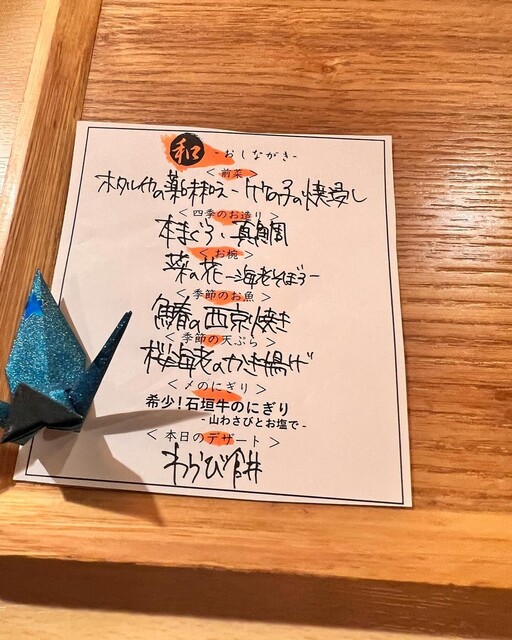 和 -おしながき-
<前菜>
ホタルイカの薬味和え-竹の子の焼浸し
<四季のお造り>
本まぐろ、真鯛
<お椀>
菜の花-海老そぼろ-
<季節のお魚>
鰆の西京焼き
<季節の天ぷら>
桜海老のかき揚げ
<〆のにぎり>
希少!石垣牛のにぎり
-山わさびとお塩で-
<本日のデザート>
わらび餅